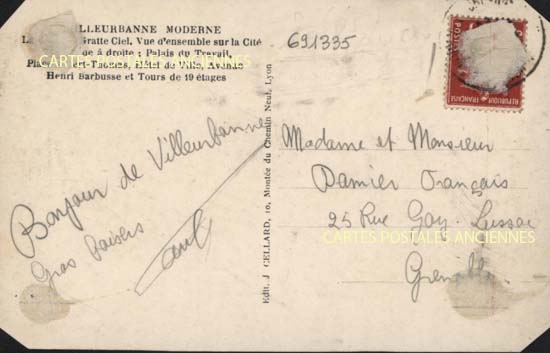 LLEURBANNE MODERNE
Gratte Ciel, Vue d'ensemble sur la Cité
à droite : Palais du Travail,
Hôtel de Ville, Avenue
Henri Barbusse et Tours de 19 étages
691335
POSTES
REPUBLIQUE FRANÇAISE
Bonjour de Villeurbanne
Gros Baisers
Edit. J CELLARD, 10, Montée du Chemin Neuf, Lyon
Madame et Monsieur
Damier Français
25 Rue Gay-Lussac
CARTES POSTALES ANCIENNES
CARTES POSTALES ANCIENNES
CARTES POSTALES ANCIENNES